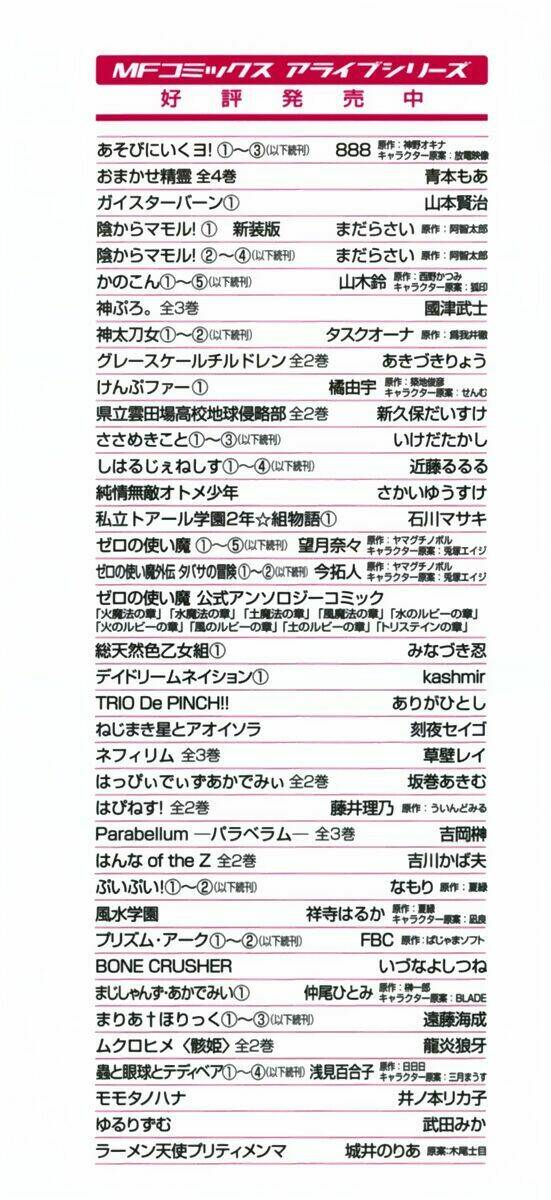 MFコミックス アライブシリーズ
好評発売中
あそびにいくヨ! ①〜③(以下続刊) 888 原作：神野オキナ キャラクター原案：放電映像
おまかせ精霊 全4巻 青本もあ
ガイスターバーン① 山本賢治
陰からマモル! ① 新装版 まだらさい 原作：阿智太郎
陰からマモル! ②〜④(以下続刊) まだらさい 原作：阿智太郎
かのこん①〜⑤(以下続刊) 山木鈴 原作：西野かつみ キャラクター原案：狐印
神ぷろ。全3巻 國津武士
神太刀女①〜②(以下続刊) タスクオーナ 原作：為我井徹
グレースケールチルドレン 全2巻 あきづきりょう
けんぷファー① 橘由宇 原作：築地俊彦 キャラクター原案：せんむ
県立雲田場高校地球侵略部 全2巻 新久保だいすけ
ささめきこと①〜③(以下続刊) いけだたかし
しはるじぇねしす①〜④(以下続刊) 近藤るるる
純情無敵オトメ少年 さかいゆうすけ
私立トアール学園2年☆組物語① 石川マサキ
ゼロの使い魔 ①〜⑤(以下続刊) 望月奈々 原作：ヤマグチノボル キャラクター原案：兎塚エイジ
ゼロの使い魔外伝 タバサの冒険①〜②(以下続刊) 今拓人 原作：ヤマグチノボル キャラクター原案：兎塚エイジ
ゼロの使い魔 公式アンソロジーコミック
「火魔法の章」「水魔法の章」「土魔法の章」「風魔法の章」「水のルビーの章」
「火のルビーの章」「風のルビーの章」「土のルビーの章」「トリステインの章」
総天然色乙女組① みなづき忍
デイドリームネイション① kashmir
TRIO De PINCH!! ありがひとし
ねじまき星とアオイソラ 刻夜セイゴ
ネフィリム 全3巻 草壁レイ
はっぴぃでぃずあかでみぃ 全2巻 坂巻あきむ
はぴねす! 全2巻 藤井理乃 原作：ういんどみる
Parabellum ―パラベラム― 全3巻 吉岡榊
はんな of the Z 全2巻 吉川かば夫
ぷいぷい!①〜②(以下続刊) なもり 原作：夏緑
風水学園 祥寺はるか 原作：夏緑 キャラクター原案：凪良
プリズム・アーク①〜②(以下続刊) FBC 原作：ぱじゃまソフト
BONE CRUSHER いづなよしつね
まじしゃんず・あかでみい① 仲尾ひとみ 原作：榊一郎 キャラクター原案：BLADE
まりあ†ほりっく①〜③(以下続刊) 遠藤海成
ムクロヒメ〈骸姫〉全2巻 龍炎狼牙
蟲と眼球とテディベア①〜④(以下続刊) 浅見百合子 原作：日日日 キャラクター原案：三月まうす
モモタノハナ 井ノ本リカ子
ゆるりずむ 武田みか
ラーメン天使プリティメンマ 城井のりあ 原案：木尾士目